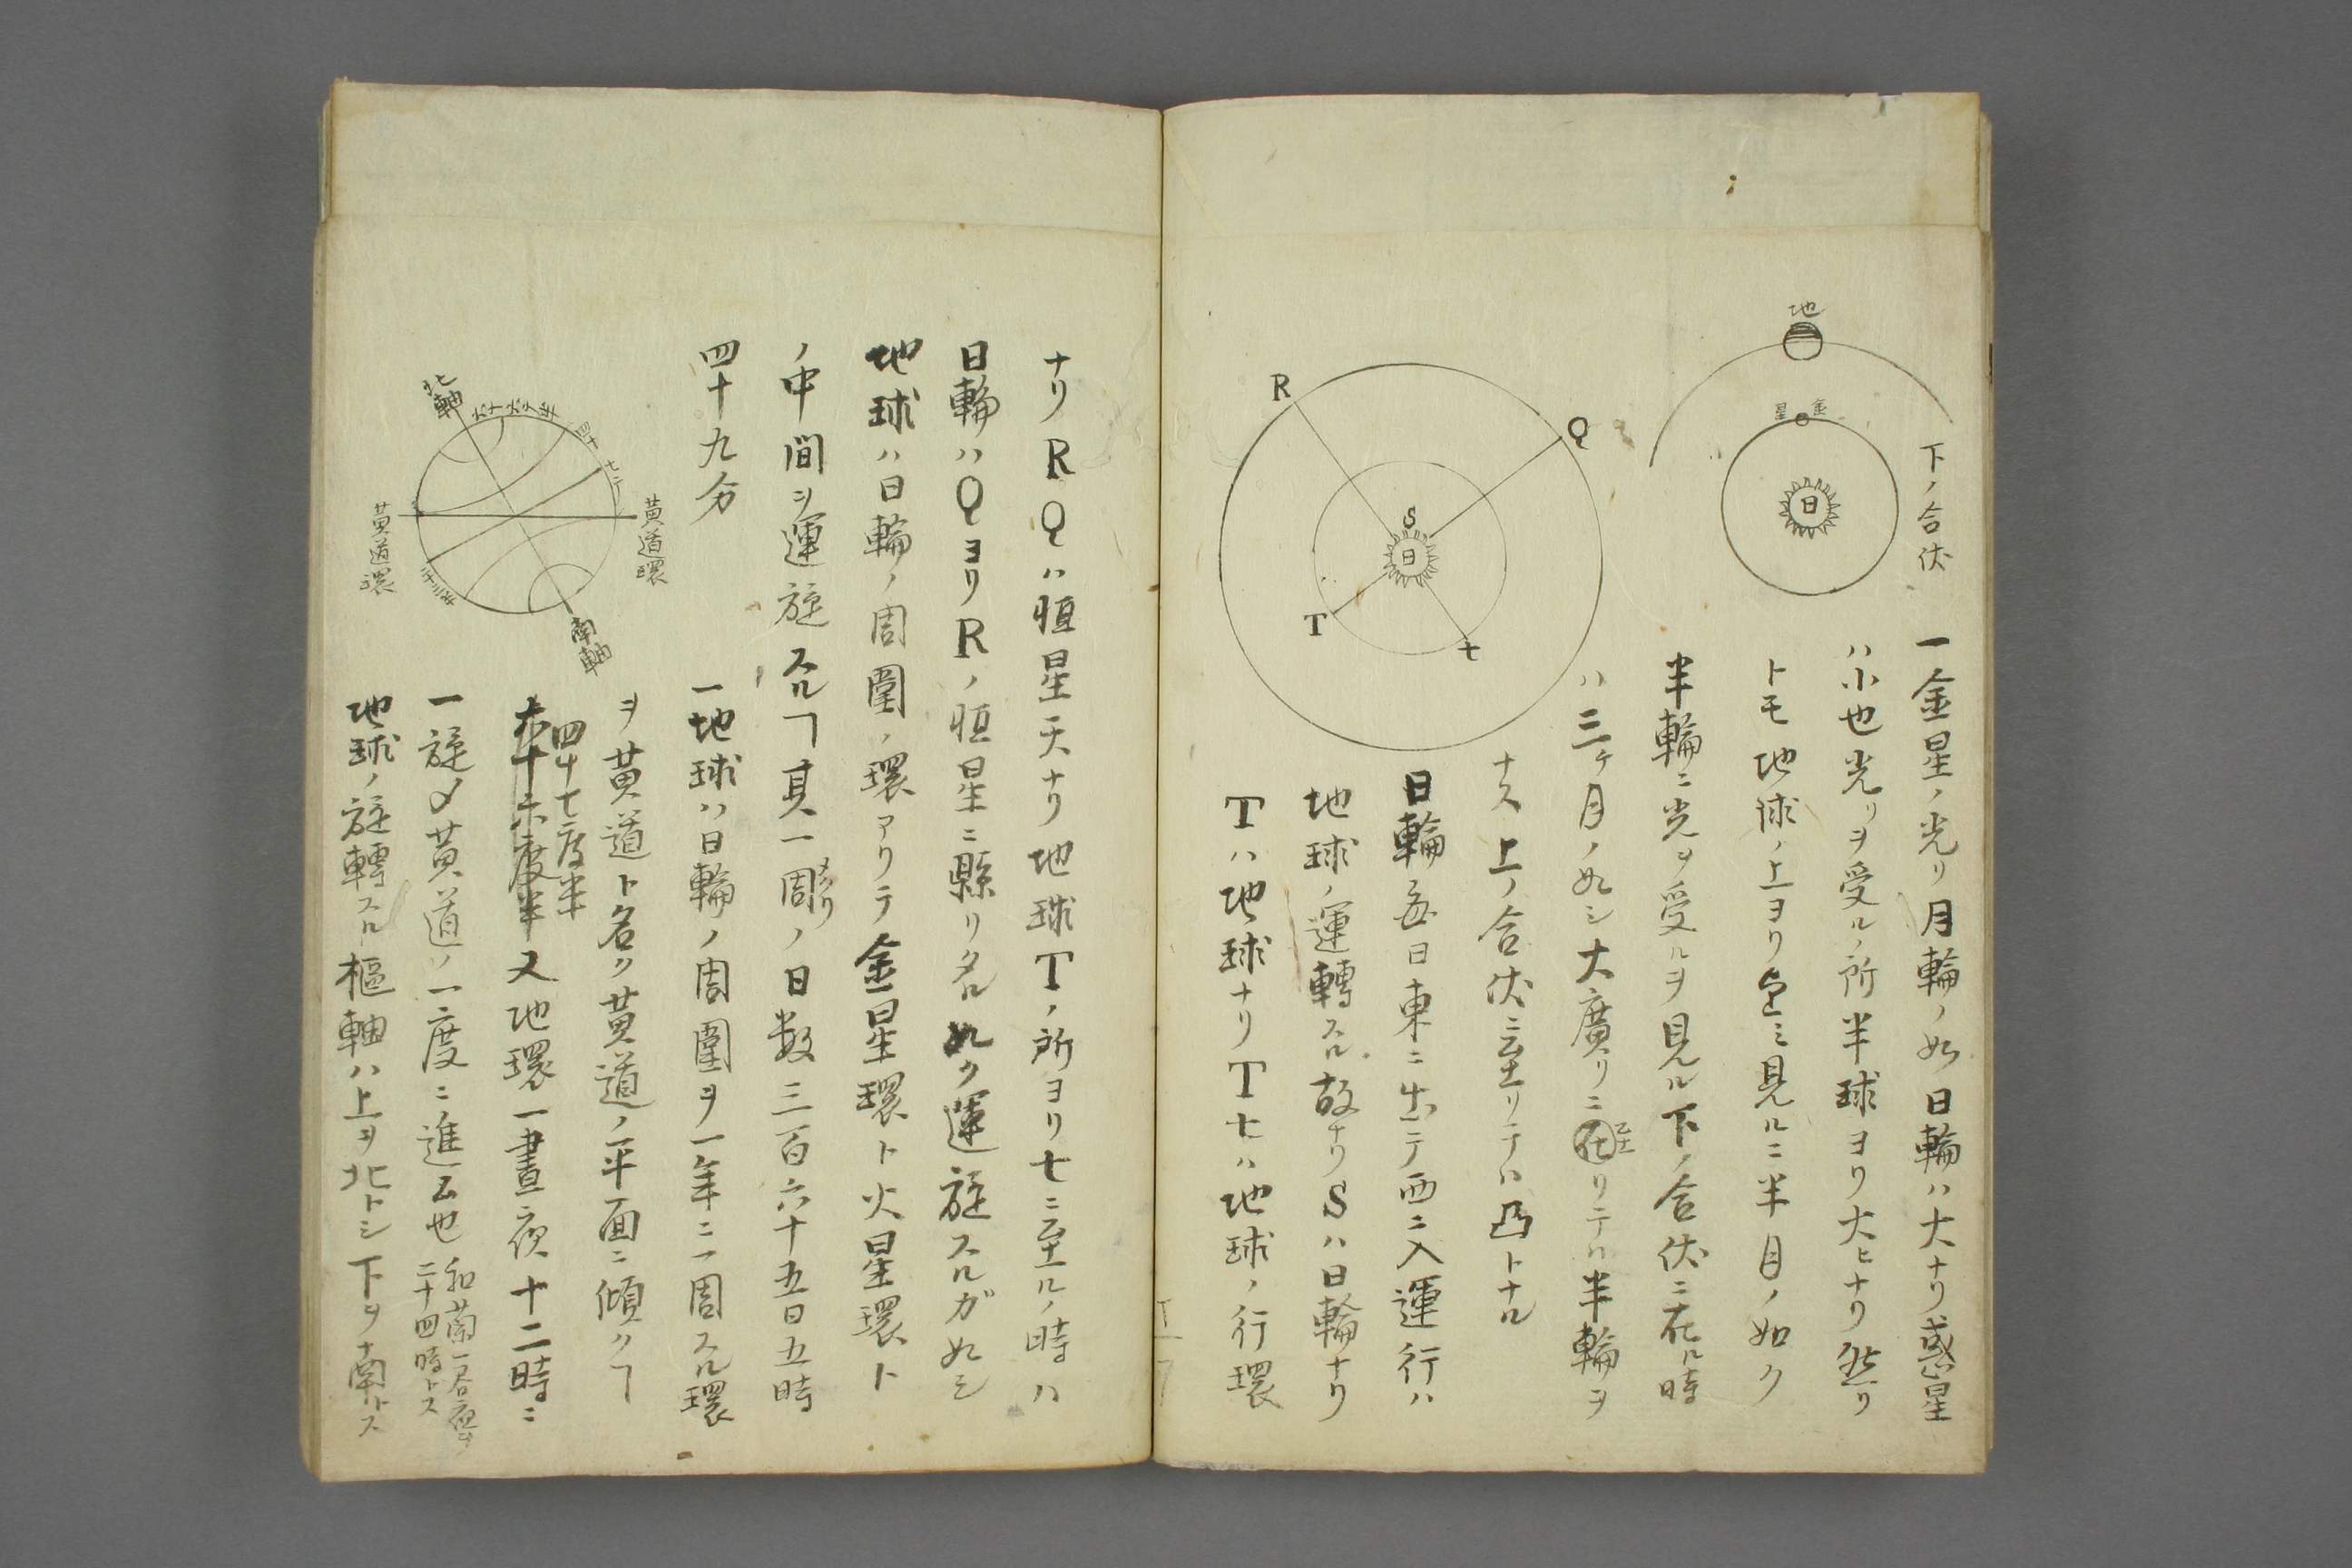 地
金
星
日
下ノ合伏
一金星ノ光リ月輪ノ如日輪ハ大ナリ惑星
ハ小也光リヲ受ルノ所半球ヨリ大ヒナリ然リ
トモ地球ノ上ヨリ見ルニ半月ノ如ク
半輪ニ光ヲ受ルヲ見ル下ノ合伏ニ在ル時
ハ三ケ月ノ如シ大廣リニ至リテハ半輪ヲ
ナス上ノ合伏ニ至リテハ凸トナル
R
Q
S
日
T
t
日輪毎日東ニ出テ西ニ入運行ハ
地球ノ運轉スル故ナリSハ日輪ナリ
Tハ地球ナリTtハ地球ノ行環
ナリRQハ恒星天ナリ地球Tノ所ヨリtニ至ルノ時ハ
日輪ハQヨリRノ恒星ニ縣リタル如ク運旋スルガ如シ
地球ハ日輪ノ周圍ノ環アリテ金星環ト火星環ト
ノ中間ヲ運旋スルヿ其一周メクリノ日数三百六十五日五時
四十九分
一地球ハ日輪ノ周圍ヲ一年ニ一周スル環
ヲ黄道ト名ク黄道ノ平面ニ傾クヿ
四十七度半
六十六度半又地環一晝夜十二時ニ
一旋〆黄道ノ一度ニ進ム也
二十四時トス
地球ノ旋轉スル樞軸ハ上ヲ北トシ下ヲ南トス
北軸
六十六度半
四十七
黄道環
黄道環
南軸